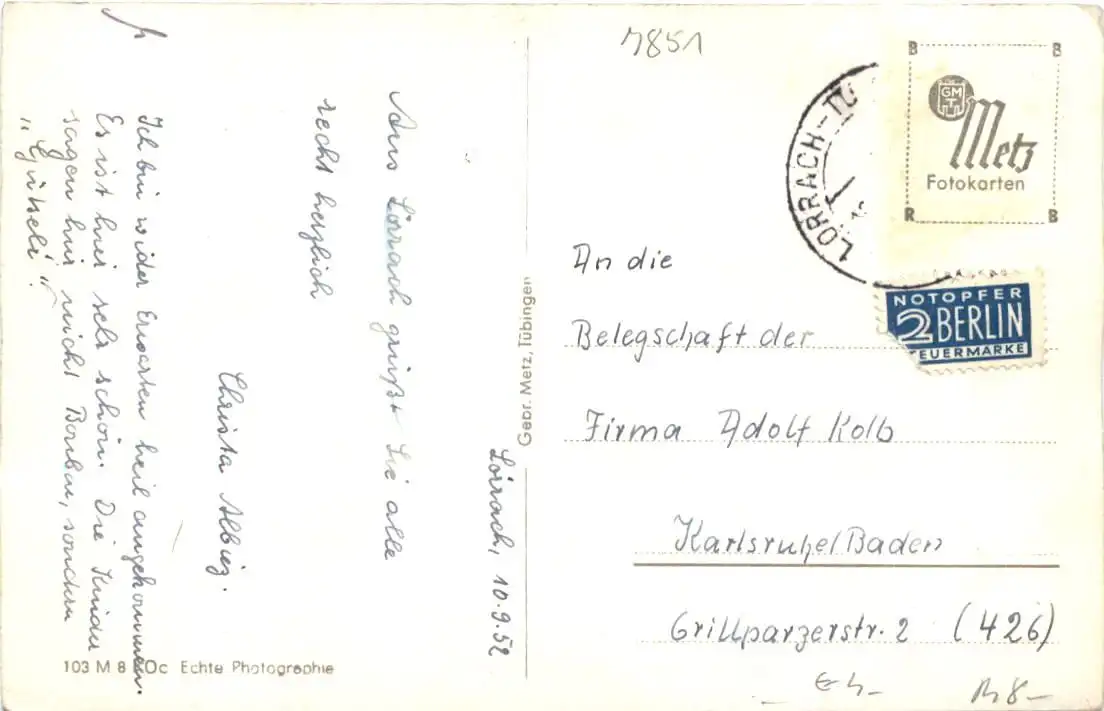 Lörrach, 10.9.52
Aus Lörrach grüßt Sie alle
recht herzlich
Christa Albiez.
Ich bin wider Erwarten heil angekommen.
Es ist hier sehr schön. Die Kinder
sagen hier nicht Bonbon, sondern
„Gützeli".
7851
LÖRRACH
B B
GMT
Metz
Fotokarten
R B
NOTOPFER
2 BERLIN
TEUERMARKE
An die
Belegschaft der
Firma Adolf Kolb
Karlsruhe/Baden
Grillparzerstr. 2 (426)
Gebr. Metz, Tübingen
103 M 8 Oc Echte Photographie